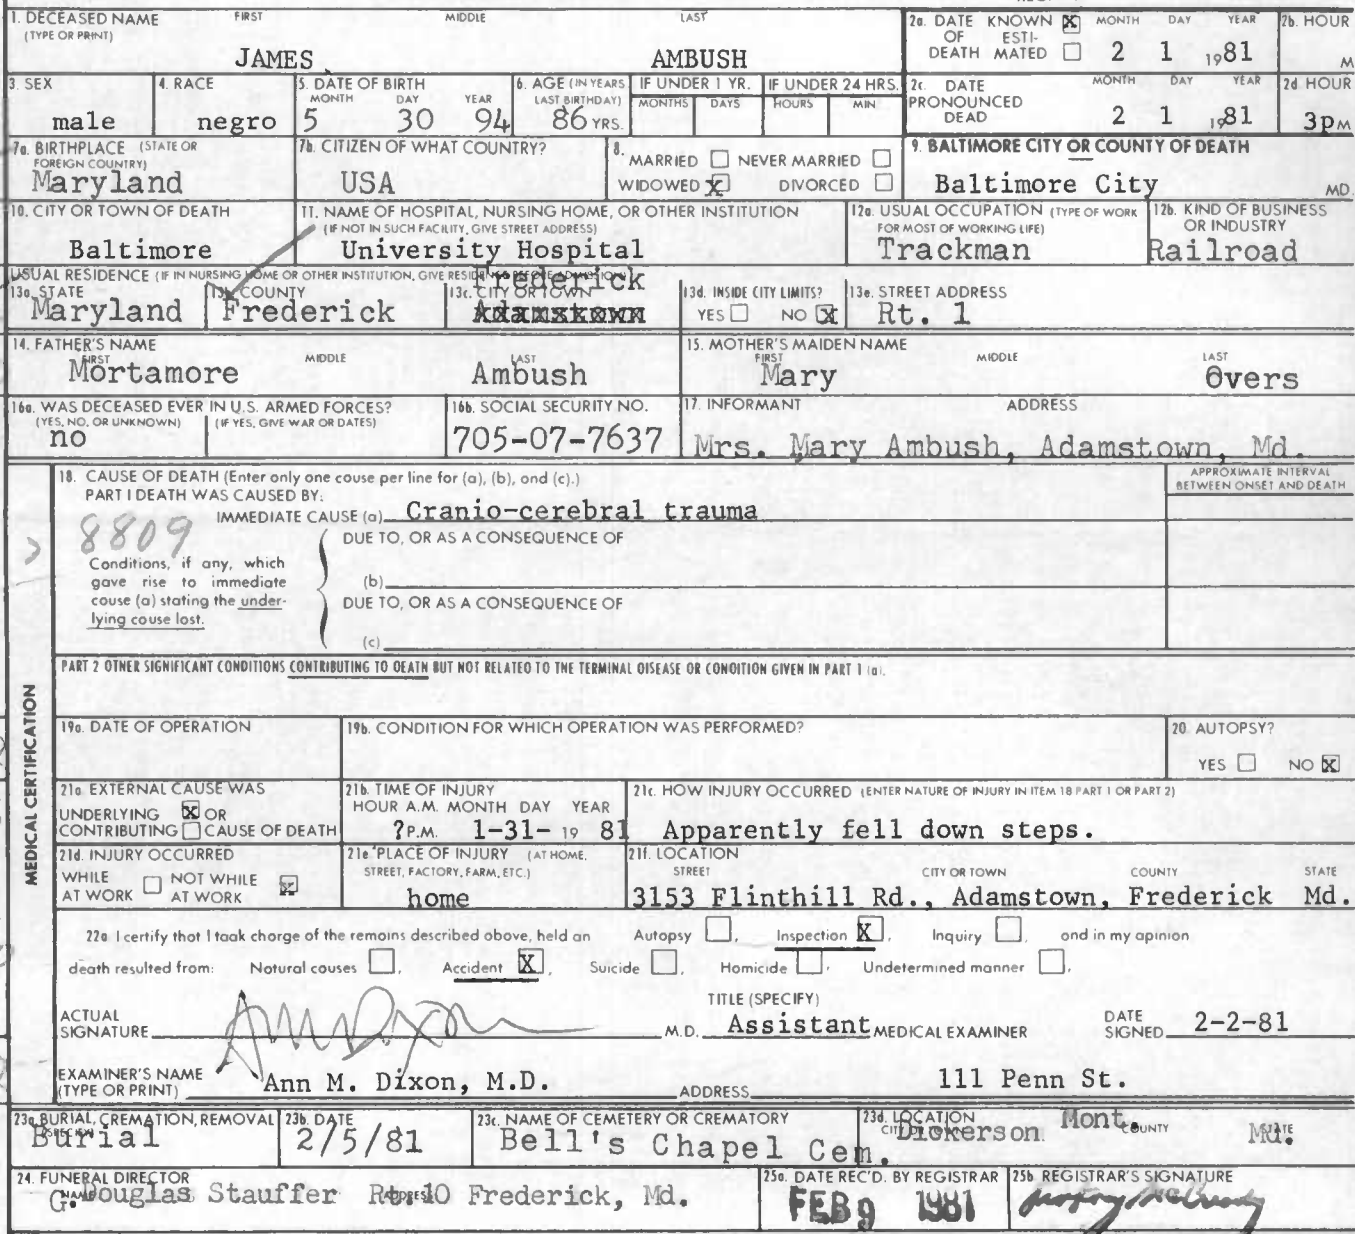 1. DECEASED NAME FIRST MIDDLE LAST
(TYPE OR PRINT)
JAMES AMBUSH
2a. DATE KNOWN X MONTH DAY YEAR
OF ESTI-
DEATH MATED 2 1 1981
2b. HOUR
M
3. SEX
male
4. RACE
negro
5. DATE OF BIRTH
MONTH DAY YEAR
5 30 94
6. AGE (IN YEARS
LAST BIRTHDAY)
86 YRS.
IF UNDER 1 YR.
MONTHS DAYS
IF UNDER 24 HRS.
HOURS MIN
2c. DATE MONTH DAY YEAR
PRONOUNCED
DEAD 2 1 1981
2d HOUR
3PM
7a. BIRTHPLACE (STATE OR
FOREIGN COUNTRY)
Maryland
7b. CITIZEN OF WHAT COUNTRY?
USA
8.
MARRIED NEVER MARRIED
WIDOWED X DIVORCED
9. BALTIMORE CITY OR COUNTY OF DEATH
Baltimore City MD.
10. CITY OR TOWN OF DEATH
Baltimore
11. NAME OF HOSPITAL, NURSING HOME, OR OTHER INSTITUTION
(IF NOT IN SUCH FACILITY, GIVE STREET ADDRESS)
University Hospital
12a. USUAL OCCUPATION (TYPE OF WORK
FOR MOST OF WORKING LIFE)
Trackman
12b. KIND OF BUSINESS
OR INDUSTRY
Railroad
USUAL RESIDENCE (IF IN NURSING HOME OR OTHER INSTITUTION, GIVE RESIDENCE BEFORE ADMISSION)
13a. STATE
Maryland
13b. COUNTY
Frederick
Frederick
13c. CITY OR TOWN
Adamstown
13d. INSIDE CITY LIMITS?
YES NO X
13e. STREET ADDRESS
Rt. 1
14. FATHER'S NAME
FIRST MIDDLE LAST
Mortamore Ambush
15. MOTHER'S MAIDEN NAME
FIRST MIDDLE LAST
Mary Overs
16a. WAS DECEASED EVER IN U.S. ARMED FORCES?
(YES, NO, OR UNKNOWN) (IF YES, GIVE WAR OR DATES)
no
16b. SOCIAL SECURITY NO.
705-07-7637
17. INFORMANT ADDRESS
Mrs. Mary Ambush, Adamstown, Md.
MEDICAL CERTIFICATION
18. CAUSE OF DEATH (Enter only one cause per line for (a), (b), and (c).)
PART I DEATH WAS CAUSED BY:
APPROXIMATE INTERVAL
BETWEEN ONSET AND DEATH
IMMEDIATE CAUSE (a) Cranio-cerebral trauma
8809
DUE TO, OR AS A CONSEQUENCE OF
Conditions, if any, which
gave rise to immediate
cause (a) stating the under-
lying cause last.
(b)
DUE TO, OR AS A CONSEQUENCE OF
(c)
PART 2 OTHER SIGNIFICANT CONDITIONS CONTRIBUTING TO DEATH BUT NOT RELATED TO THE TERMINAL DISEASE OR CONDITION GIVEN IN PART 1 (a).
19a. DATE OF OPERATION
19b. CONDITION FOR WHICH OPERATION WAS PERFORMED?
20. AUTOPSY?
YES NO X
21a. EXTERNAL CAUSE WAS
UNDERLYING X OR
CONTRIBUTING CAUSE OF DEATH
21b. TIME OF INJURY
HOUR A.M. MONTH DAY YEAR
? P.M. 1-31- 19 81
21c. HOW INJURY OCCURRED (ENTER NATURE OF INJURY IN ITEM 18 PART 1 OR PART 2)
Apparently fell down steps.
21d. INJURY OCCURRED
WHILE NOT WHILE
AT WORK AT WORK X
21e PLACE OF INJURY (AT HOME,
STREET, FACTORY, FARM, ETC.)
home
21f. LOCATION
STREET CITY OR TOWN COUNTY STATE
3153 Flinthill Rd., Adamstown, Frederick Md.
22a I certify that I took charge of the remains described above, held an Autopsy , Inspection X , Inquiry , and in my opinion
death resulted from: Natural causes , Accident X , Suicide , Homicide , Undetermined manner .
ACTUAL
SIGNATURE Ann Dixon M.D.
TITLE (SPECIFY)
Assistant MEDICAL EXAMINER
DATE
SIGNED 2-2-81
EXAMINER'S NAME
(TYPE OR PRINT) Ann M. Dixon, M.D. ADDRESS 111 Penn St.
23a BURIAL, CREMATION, REMOVAL
Burial
23b. DATE
2/5/81
23c. NAME OF CEMETERY OR CREMATORY
Bell's Chapel Cem.
23d. LOCATION
CITY OR TOWN COUNTY STATE
Dickerson Mont. Md.
24. FUNERAL DIRECTOR
NAME ADDRESS
G. Douglas Stauffer Rt. 10 Frederick, Md.
25a. DATE REC'D. BY REGISTRAR
FEB 9 1981
25b. REGISTRAR'S SIGNATURE